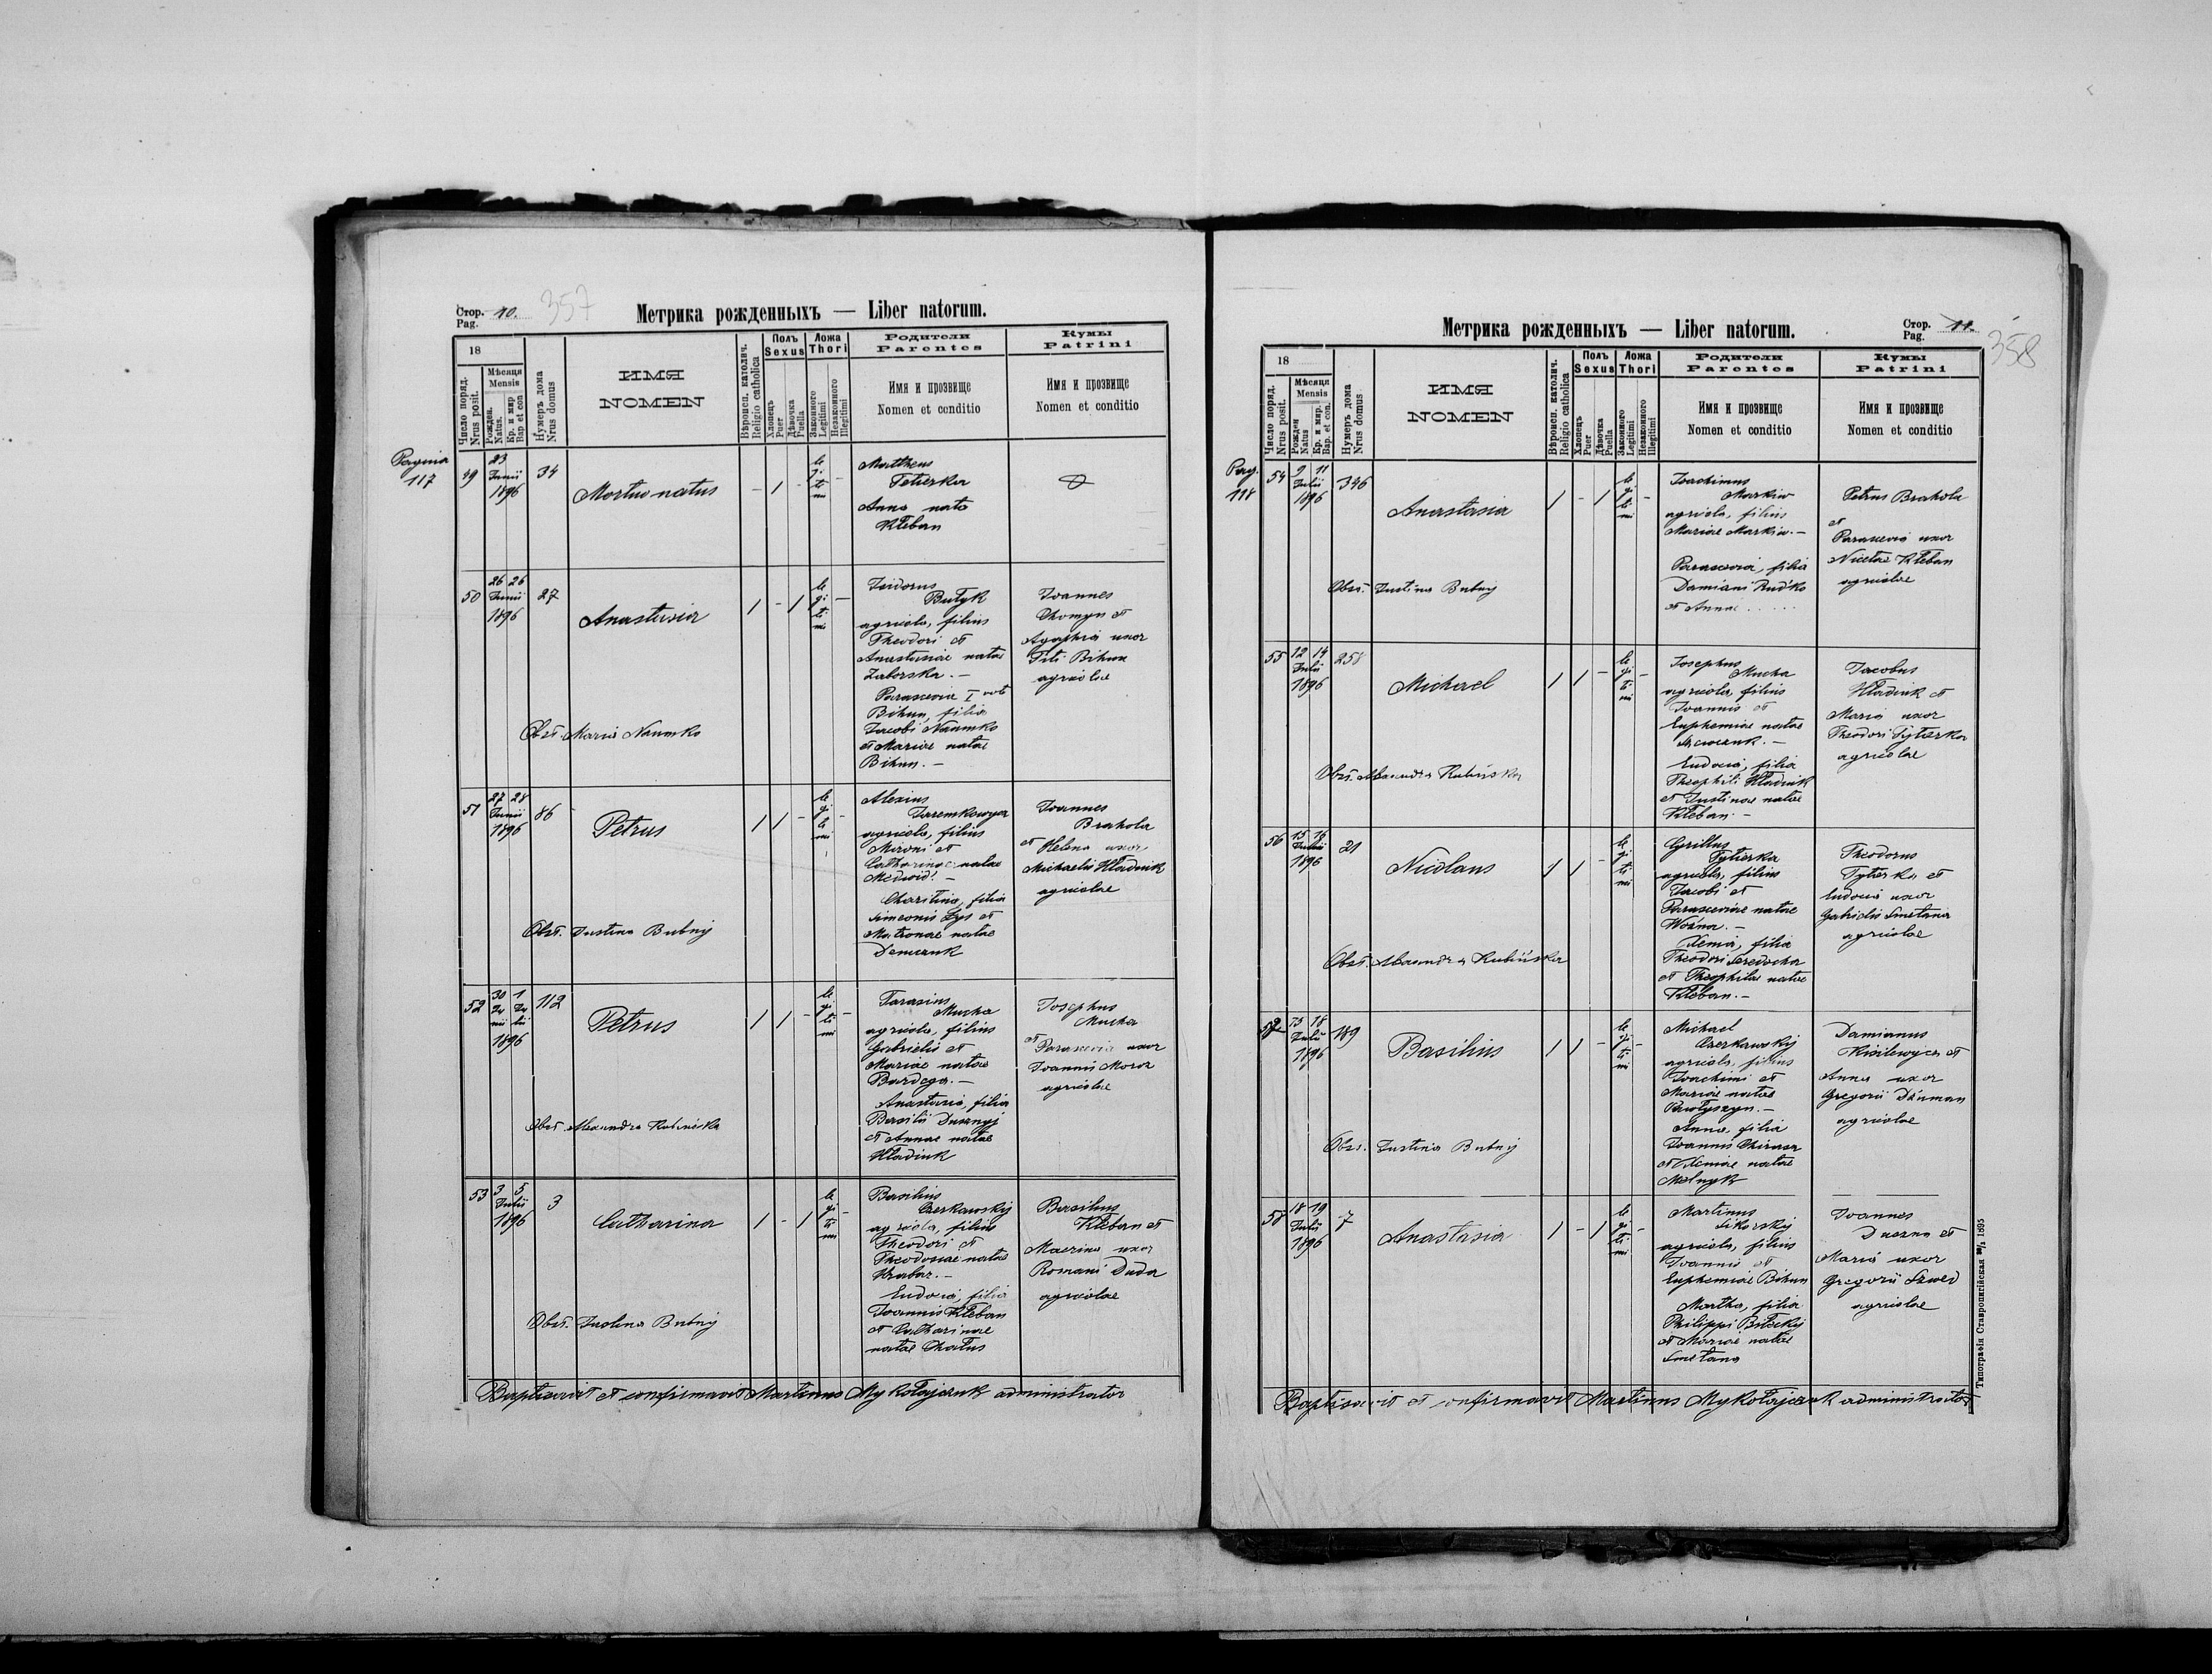 Стор. 10. 357
Pag.
Метрика рожденныхъ — Liber natorum.
18
Число поряд.
Nrus posit.
Мѣсяця
Mensis
Рожден.
Natus.
Кр. и мир
Bap et con
Нумеръ дома
Nrus domus
ИМЯ
NOMEN
Вѣроисп. католич.
Religio catholica
Полъ
Sexus
Хлопець
Puer
Дѣвочка
Puella
Ложа
Thori
Законного
Legitimi
Незаконного
Illegitimi
Родители
Parentes
Имя и прозвище
Nomen et conditio
Кумы
Patrini
Имя и прозвище
Nomen et conditio
Pagina
117
49
23
Junii
1896
34
Mortuo natus
- / -
le
gi
ti
mi
Mattheus
Teterka
Anna nata
Kleban
50
26 26
Junii
1896
27
Anastasia
/ - /
le
gi
ti
mi
Isidorus
Butyk
agricola, filius
Theodori et
Anastasiae natae
Zaborska. —
Parascevia I voto
Bihun, filia
Jacobi Naumko
et Mariae natae
Bihun. —
Joannes
Chomyn et
Agaphia uxor
Titi Bihun
agricolae
Obst. Maria Naumko
51
27 28
Junii
1896
86
Petrus
/ / -
le
gi
ti
mi
Alexius
Jaremkowycz
agricola, filius
Mironi et
Catharinae natae
Medwid. —
Charitina, filia
Simeonis Lys et
Matronae natae
Demczuk
Joannes
Brahola
et Helena uxor
Michaelis Hladiuk
agricolae
Obst. Justina Bubnij
52
30 1
Ju Ju
nii lii
1896
112
Petrus
/ / -
le
gi
ti
mi
Tarasius
Mucha
agricola, filius
Gabrielis et
Mariae natae
Bardega. —
Anastasia, filia
Basilii Dusznyj
et Annae natae
Hladiuk
Josephus
Mucha
et Parascevia uxor
Joannis Moroz
agricolae
Obst. Alexandra Rubinska
53
3 5
Julii
1896
3
Catharina
/ - /
le
gi
ti
mi
Basilius
Czerkawskij
agricola, filius
Theodori et
Theodosiae natae
Hrabar. —
Eudocia, filia
Joannis Kleban
et Catharinae
natae Chatus
Basilius
Kleban et
Macrina uxor
Romani Duda
agricolae
Obst. Justina Bubnij
Baptisavit et confirmavit Martinus Mykołajczuk administrator
Метрика рожденныхъ — Liber natorum.
Стор. 11.
Pag.
358
18
Число поряд.
Nrus posit.
Мѣсяця
Mensis
Рожден
Natus
Кр. и мир.
Bap. et con.
Нумеръ дома
Nrus domus
ИМЯ
NOMEN
Вѣроисп. католич.
Religio catholica
Полъ
Sexus
Хлопецъ
Puer
Дѣвочка
Puella
Ложа
Thori
Законного
Legitimi
Незаконного
Illegitimi
Родители
Parentes
Имя и прозвище
Nomen et conditio
Кумы
Patrini
Имя и прозвище
Nomen et conditio
Pag.
118
54
9 11
Julii
1896
346
Anastasia
/ - /
le
gi
ti
mi
Joachimus
Markiw
agricola, filius
Mariae Markiw. —
Parascevia, filia
Damiani Rudko
et Annae . . . . .
Petrus Brahola
et
Parascevia uxor
Nicetae Kleban
agricolae
Obst. Justina Bubnij
55
12 14
Julii
1896
258
Michael
/ / -
le
gi
ti
mi
Josephus
Mucha
agricola, filius
Joannis et
Euphemiae natae
Szewczuk. —
Eudocia, filia
Theophili Hladiuk
et Justinae natae
Kleban. —
Jacobus
Hladiuk et
Maria uxor
Theodori Tyterka
agricolae
Obst. Alexandra Rubinska
56
15 16
Julii
1896
21
Nicolaus
/ / -
le
gi
ti
mi
Cyrillus
Tyterka
agricola, filius
Jacobi et
Parasceviae natae
Woźna. —
Xenia, filia
Theodori Seredocha
et Theophilae natae
Kleban. —
Theodorus
Tyterka et
Eudocia uxor
Gabrielis Smetana
agricolae
Obst. Alexandra Rubinska
57
15 18
Julii
1896
189
Basilius
/ / -
le
gi
ti
mi
Michael
Czerkawskij
agricola, filius
Joachimi et
Mariae natae
Pawłyszyn. —
Anna, filia
Joannis Chirasz
et Xeniae natae
Melnyk
Damianus
Kisilewycz et
Anna uxor
Gregorii Dżuman
agricolae
Obst. Justina Bubnij
58
18 19
Julii
1896
7
Anastasia
/ - /
le
gi
ti
mi
Martinus
Sikorskij
agricola, filius
Joannis et
Euphemiae Bihun
Martha, filia
Philippi Bileckij
et Mariae natae
Smetana
Joannes
Duszna et
Maria uxor
Gregorii Szwed
agricolae
Baptisavit et confirmavit Martinus Mykołajczuk administrator
Типографія Ставропигійская 1895